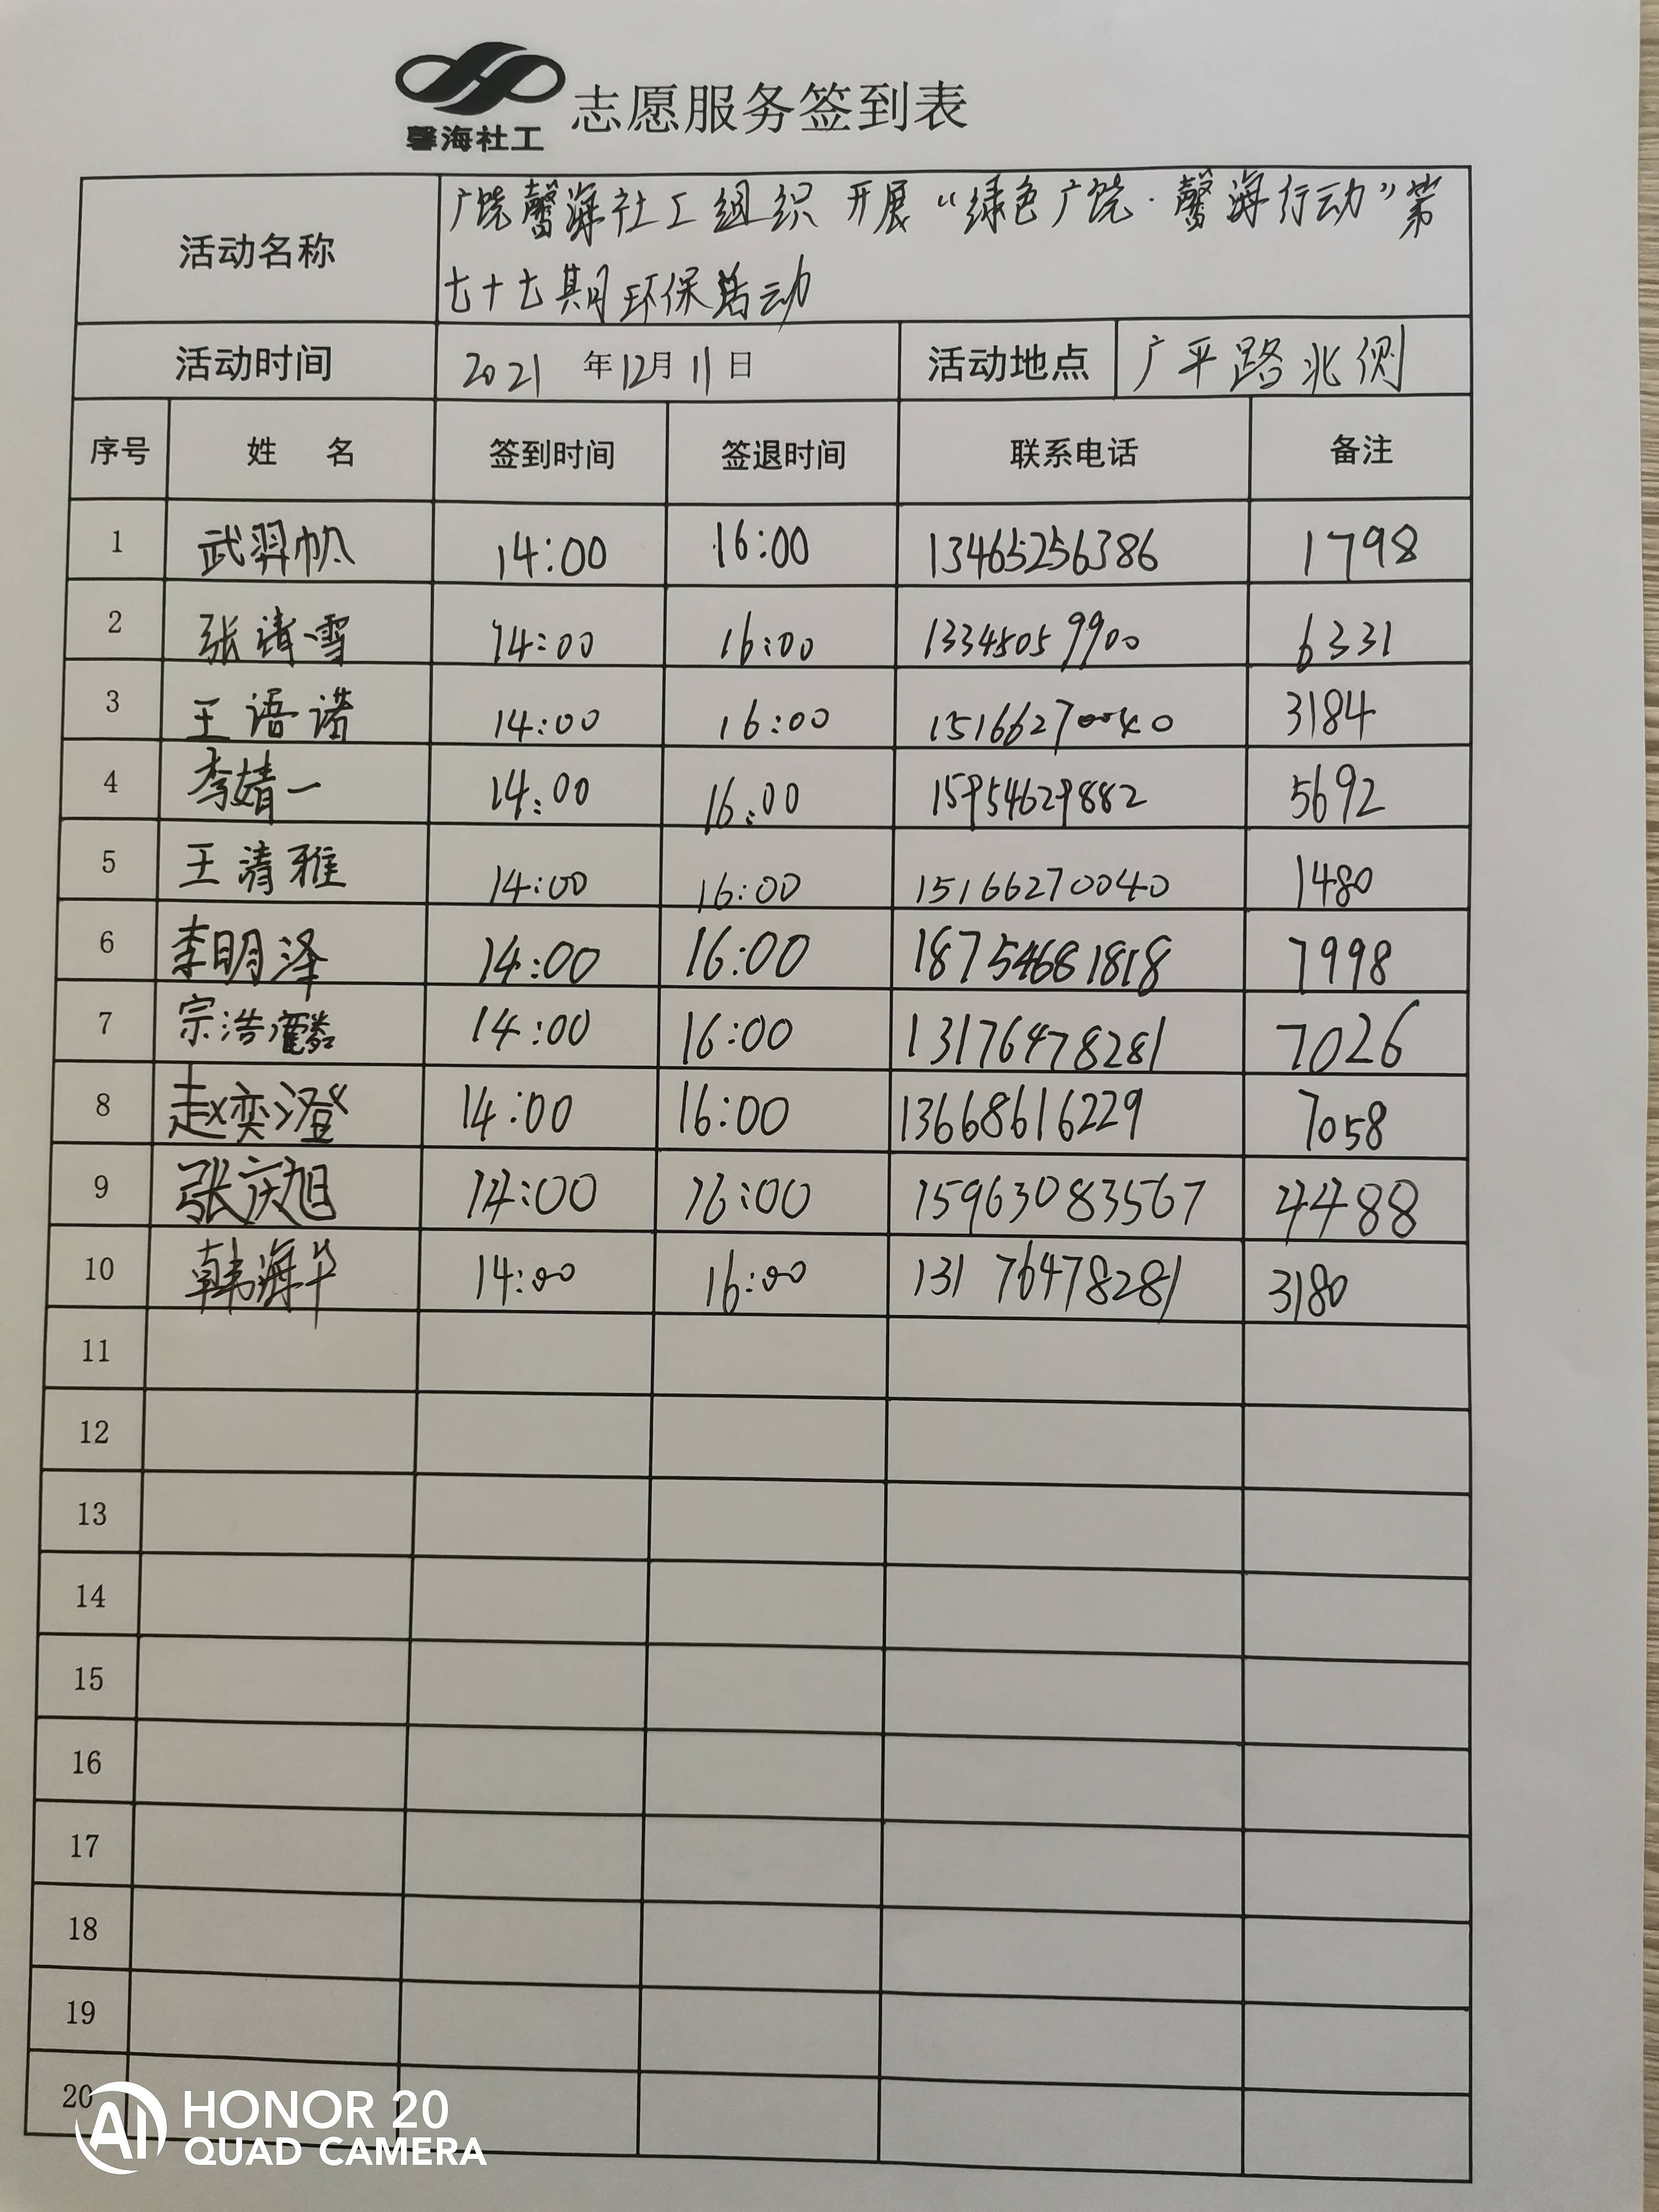 馨海社工
志愿服务签到表
活动名称 广饶馨海社工组织开展“绿色广饶·馨海行动”第
七十七期环保活动
活动时间 2021 年 12月 11 日 活动地点 广平路北侧
序号 姓 名 签到时间 签退时间 联系电话 备注
1 武羿帆 14:00 16:00 13465256386 1798
2 张清雪 14:00 16:00 13345059900 6331
3 王语诺 14:00 16:00 15166270040 3184
4 李婧一 14:00 16:00 15954629882 5692
5 王清雅 14:00 16:00 15166270040 1480
6 李明泽 14:00 16:00 18754681818 7998
7 宗浩 14:00 16:00 13176478281 7026
8 赵奕澄 14:00 16:00 13668616229 7058
9 张庆旭 14:00 16:00 15963083567 4488
10 韩海华 14:00 16:00 13176478281 3180
11
12
13
14
15
16
17
18
19
20
AI HONOR 20
QUAD CAMERA